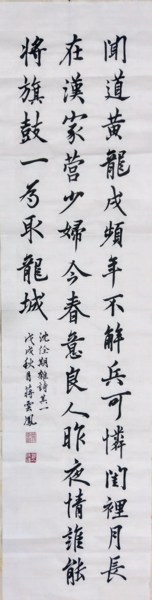 聞道黃龍戍頻年不解兵可憐閨裡月長
在漢家營少婦今春意良人昨夜情誰能
將旗鼓一為取龍城
沈佺期雜詩其一
戊戌秋月蔣雲鳳